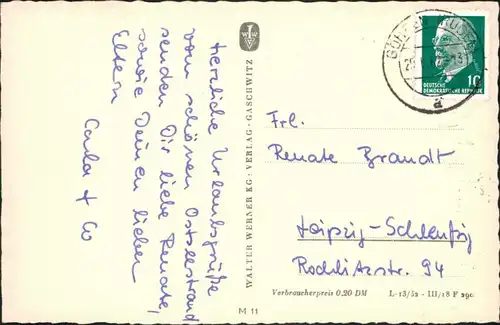 Herzliche Urlaubsgrüße
vom schönen Ostseestrand
senden Dir liebe Renate,
sowie Deinen lieben
Eltern
Carla + Co
WALTER WERNER KG · VERLAG · GASCHWITZ
DEUTSCHE
DEMOKRATISCHE REPUBLIK
10
a
Frl.
Renate Brandt
Leipzig-Schleußig
Rödlitzstr. 94
Verbraucherpreis 0.20 DM L-15/52 - III/18 F 290
M 11